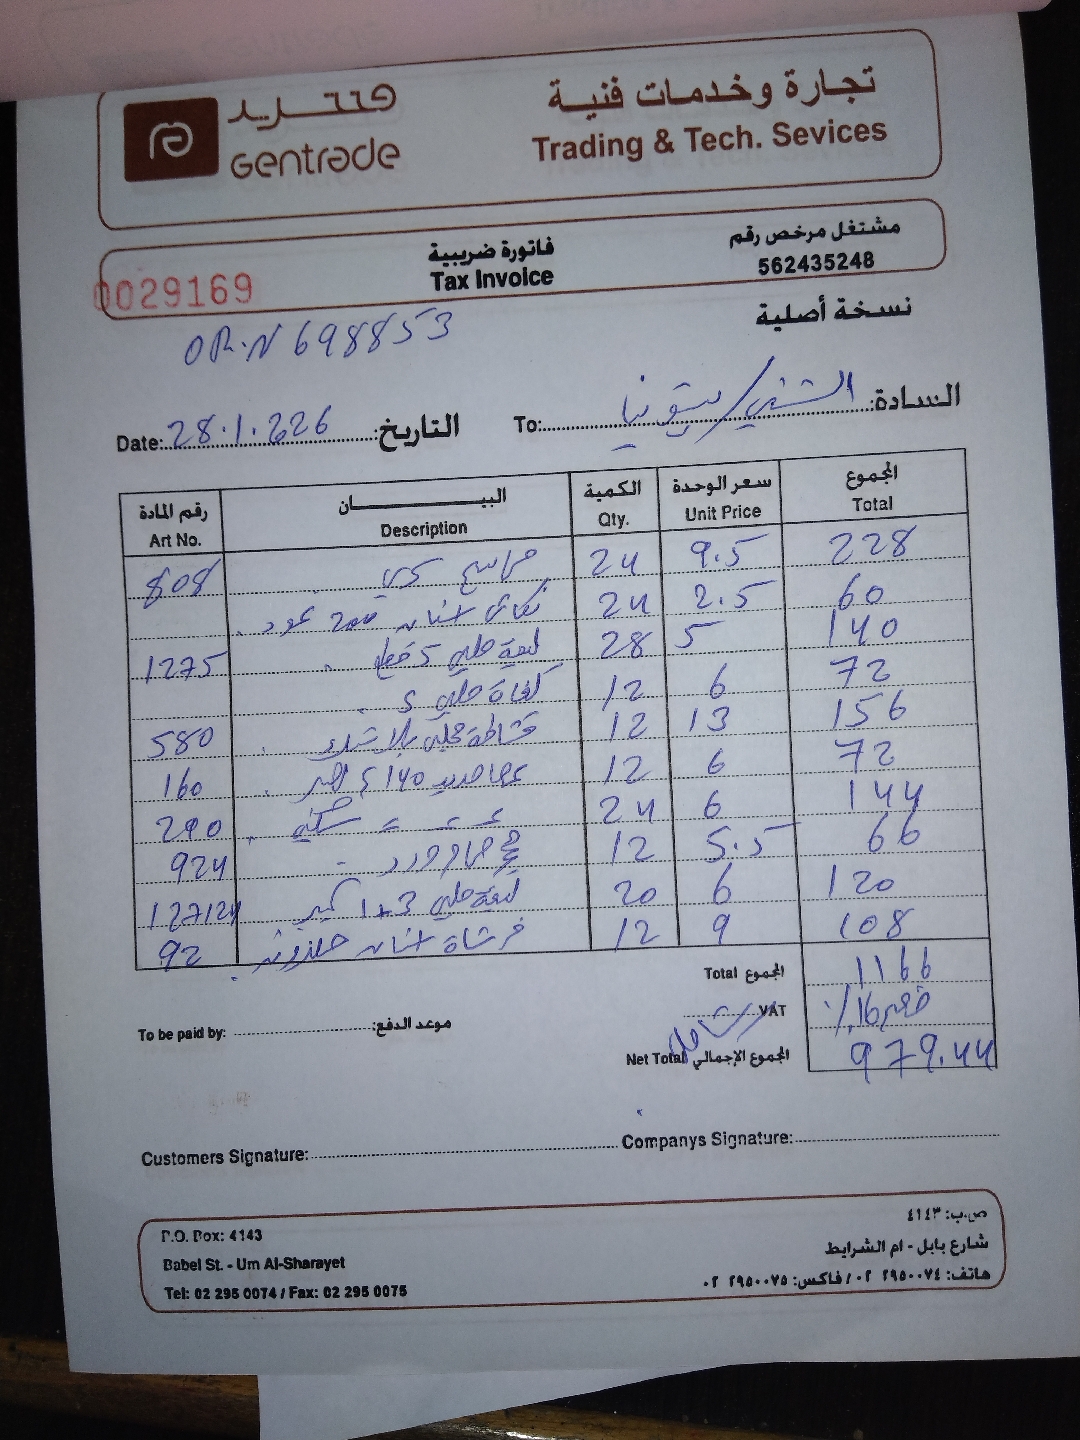 جنتريد
Gentrade
تجارة وخدمات فنية
Trading & Tech. Sevices
0029169
فاتورة ضريبية
Tax Invoice
مشتغل مرخص رقم
562435248
نسخة أصلية
OR.N 698853
Date: 28.1.226 التاريخ:
To: السادة:
رقم المادة البيان الكمية سعر الوحدة المجموع
Art No. Description Qty. Unit Price Total
808 24 9.5 228
24 2.5 60
1275 لعبة حلي 5 قطع 28 5 140
12 6 72
580 12 13 156
160 12 6 72
290 24 6 144
924 12 5.5 66
127124 لعبة حلي 3+1 كبير 20 6 120
92 فرشاة اسنان حلزونه 12 9 108
Total المجموع 1166
VAT خصم 16%
Net Total المجموع الإجمالي 979.44
شامل
To be paid by: موعد الدفع:
Customers Signature: Companys Signature:
P.O. Box: 4143
Babel St. - Um Al-Sharayet
Tel: 02 295 0074 / Fax: 02 295 0075
ص.ب: ٤١٤٣
شارع بابل - ام الشرايط
هاتف: ٢٩٥٠٠٧٤ ٠٢ / فاكس: ٢٩٥٠٠٧٥ ٠٢